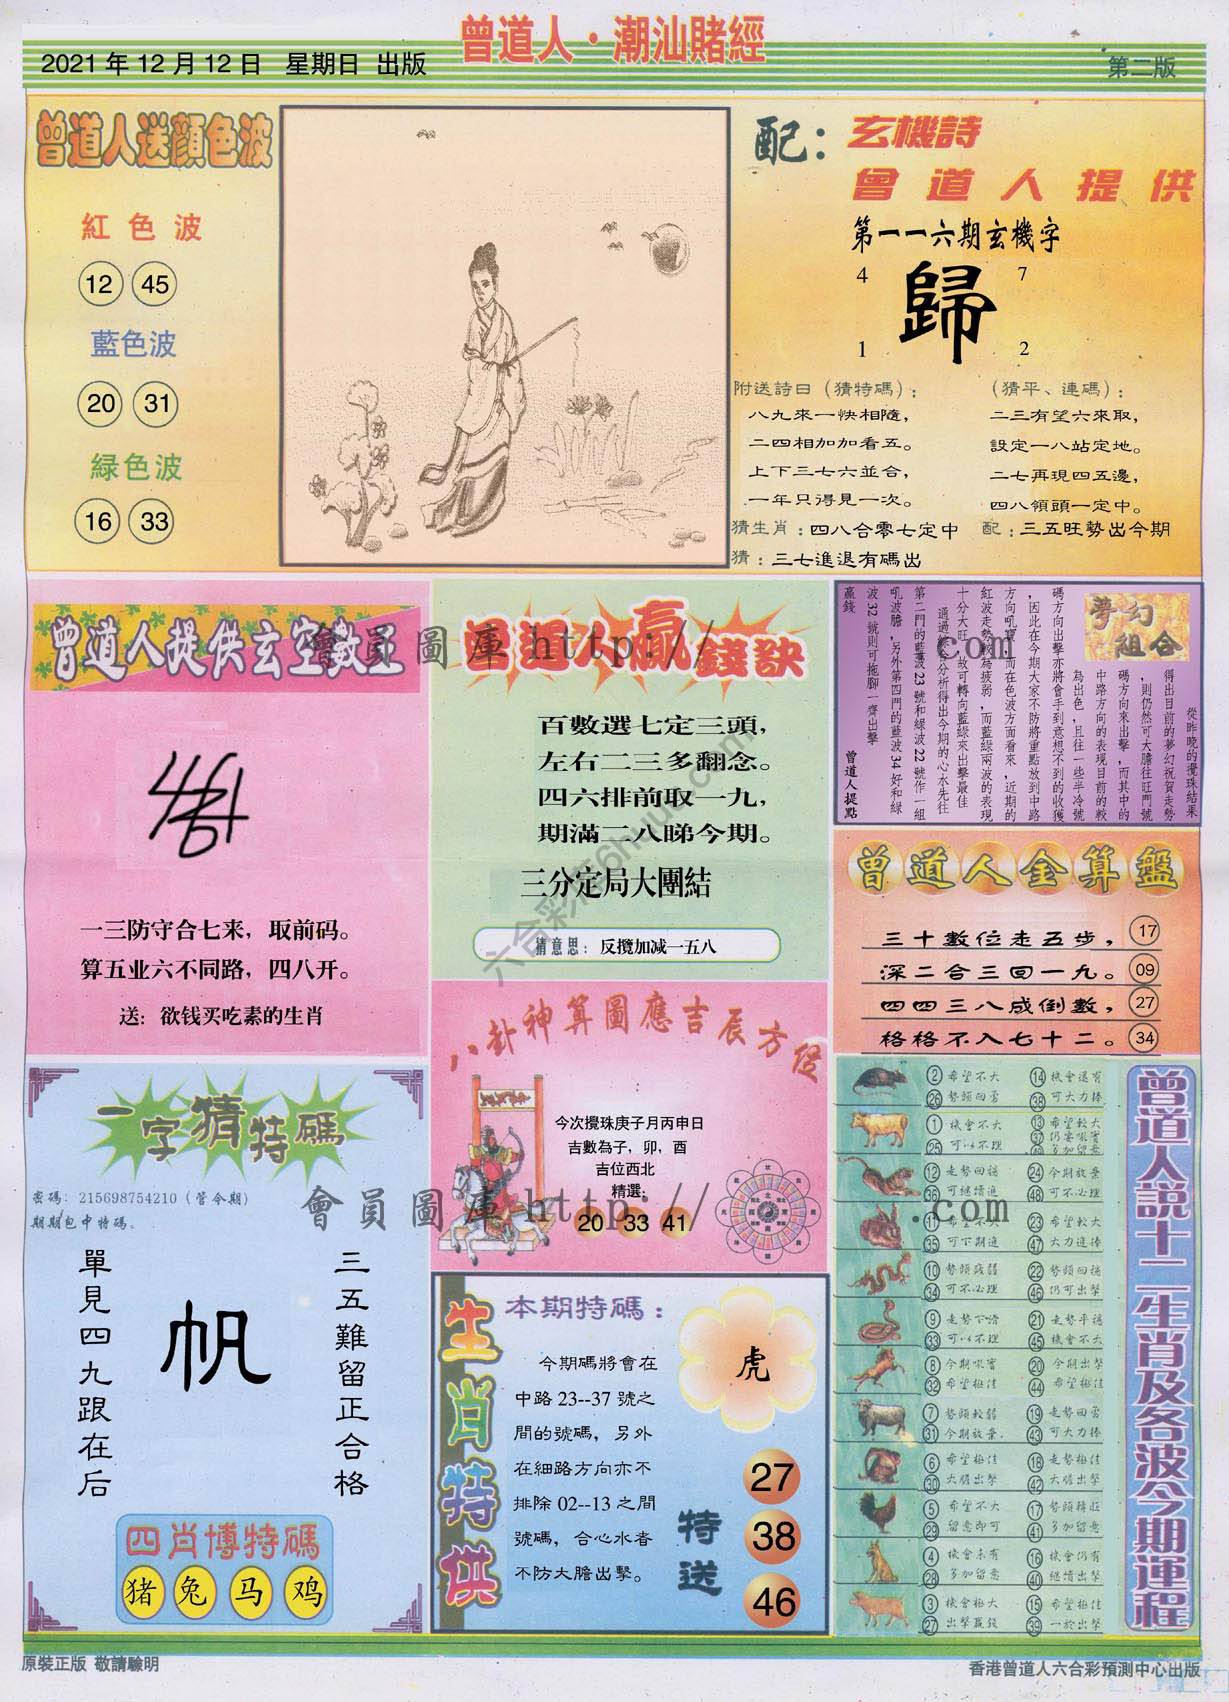 曾道人·潮汕賭經
2021年12月12日 星期日 出版
第二版
曾道人送顏色波
紅色波
12 45
藍色波
20 31
緑色波
16 33
配：玄機詩
曾道人提供
第一一六期玄機字
4 7
歸
1 2
附送詩曰（猜特碼）：
八九來一快相隨，
二四相加加看五。
上下三七六並合，
一年只得見一次。
（猜平、連碼）：
二三有望六來取，
設定一八站定地。
二七再現四五邊，
四八領頭一定中。
猜生肖：四八合零七定中
配：三五旺勢出今期
猜：三七進退有碼出
曾道人提供玄空數王
一三防守合七来，取前码。
算五业六不同路，四八开。
送：欲钱买吃素的生肖
曾道人贏錢訣
百數選七定三頭，
左右二三多翻念。
四六排前取一九，
期滿二八睇今期。
三分定局大團結
猜意思：反攬加减一五八
夢幻組合
從昨晚的攪珠結果
得出目前的夢幻祝賀走勢
，則仍然可大膽往旺門號
碼方向來出擊，而其中的
中路方向的表現目前的較
為出色，且往一些半冷號
碼方向出擊亦將會手到意想不到的收獲
，因此在今期大家不防將重點放到中路
方向吼寶，而在色波方面看來，近期的
紅波走勢較為疲弱，而藍綠兩波的表現
十分大旺，故可轉向藍綠來出擊最佳
通過綜合分析得出今期的心水先往
第二門的藍波23號和綠波22號作一組
吼波膽，另外第四門的藍波34好和綠
波32號則可拖腳一齊出擊
贏錢
曾道人提點
曾道人金算盤
三十數位走五步， 17
深二合三回一九。 09
四四三八成倒數， 27
格格不入七十二。 34
八卦神算圖應吉辰方位
今次攪珠庚子月丙申日
吉數為子，卯，酉
吉位西北
精選：
20 33 41
一字猜特碼
密碼：215698754210（管今期）
期期包中特碼。
三五難留正合格
帆
單見四九跟在后
四肖博特碼
猪 兔 马 鸡
生肖特供
本期特碼：
虎
今期碼將會在
中路23--37號之
間的號碼，另外
在細路方向亦不
排除02--13之間
號碼，合心水者
不防大膽出擊。
特送
27
38
46
曾道人說十二生肖及各波今期運程
2 希望不大 14 機會還有
26 勢頭回勇 38 可大力捧
1 機會不大 13 希望較大
25 可以不理 37 仍要吼實
49 多加留意
12 走勢回穩 24 今期放棄
36 可繼續進 48 可不必理
11 希望不大 23 希望較大
35 可下期進 47 大力進捧
10 勢頭疲弱 22 勢頭回穩
34 可不必理 46 仍可出擊
9 走勢下滑 21 走勢平穩
33 可以不理 45 機會不大
8 今期吼實 20 今期出擊
32 希望極佳 44 希望極佳
7 勢頭較弱 19 走勢回勇
31 今期放棄 43 可大力捧
6 希望極佳 18 走勢極佳
30 大膽出擊 42 大膽出擊
5 希望不大 17 勢頭轉旺
29 留意即可 41 多加留意
4 機會未有 16 機會仍有
28 多加留意 40 繼續出擊
3 機會極大 15 希望極佳
27 出擊贏錢 39 一於出擊
會員圖庫 http:// .com
會員圖庫 http:// .com
原裝正版 敬請驗明
香港曾道人六合彩預測中心出版